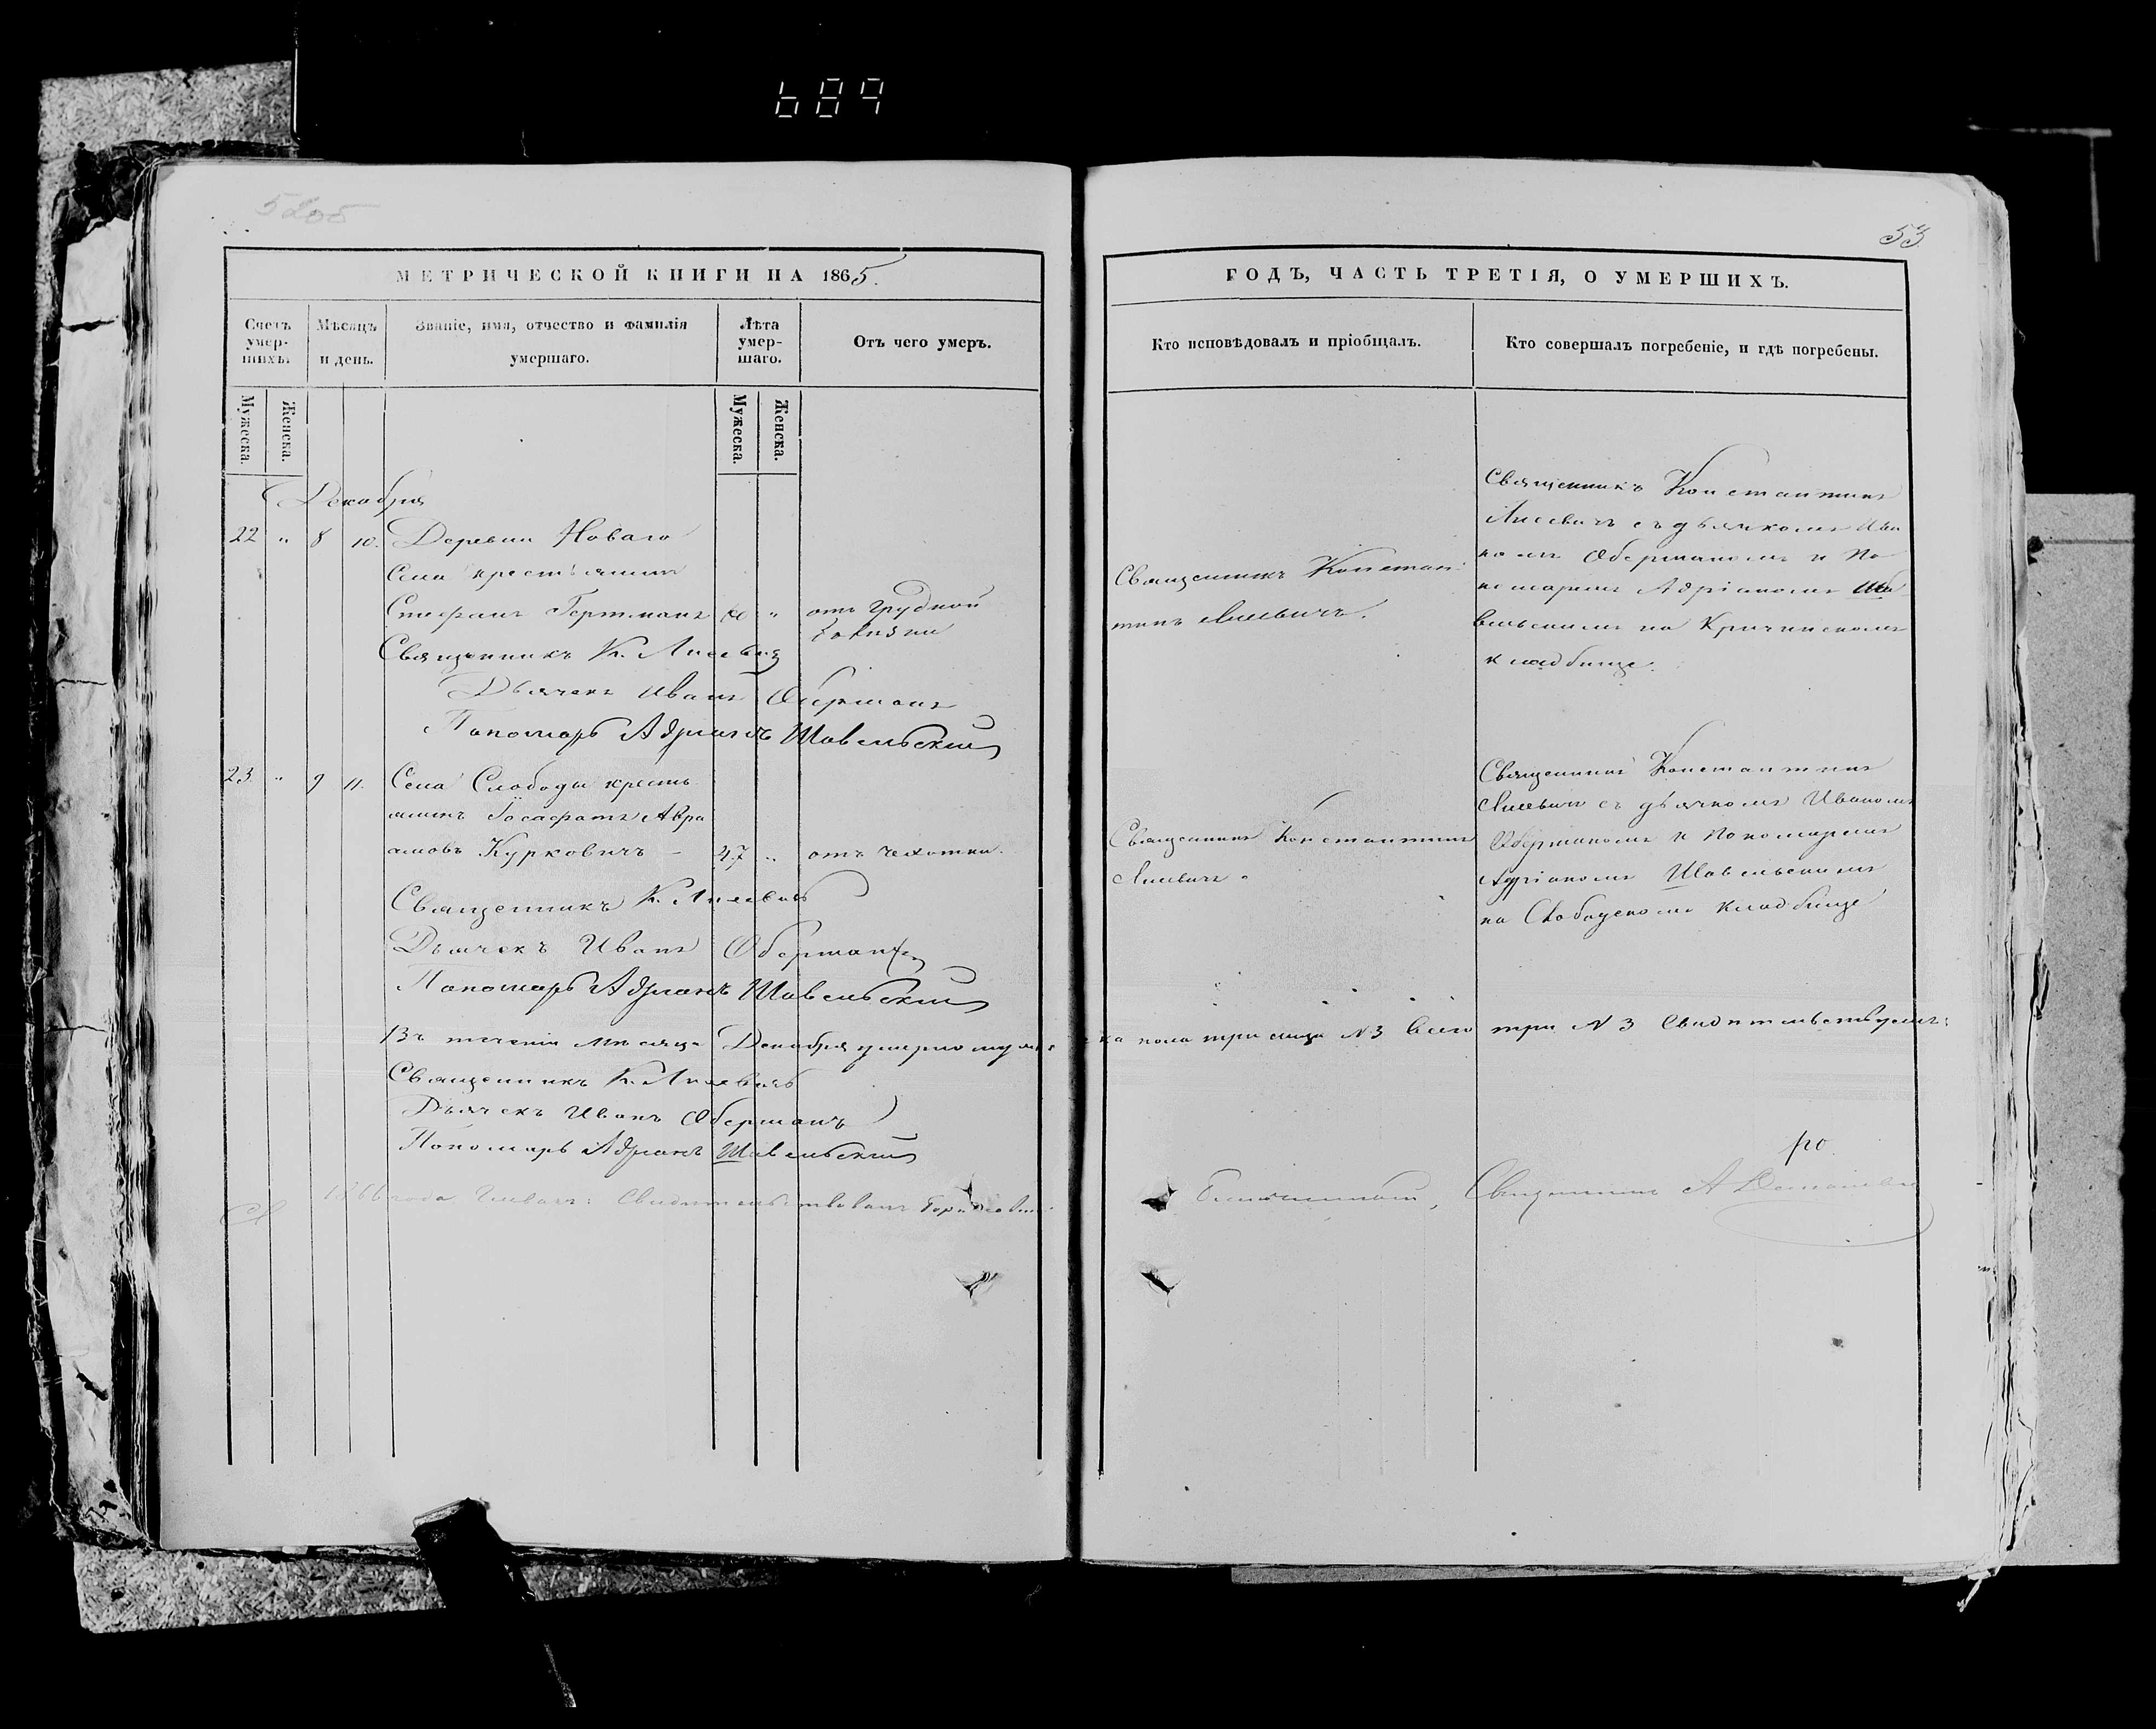 689
53
МЕТРИЧЕСКОЙ КНИГИ НА 1865.
Счетъ умер-шихъ.
Мѣсяцъ и день.
Званіе, имя, отчество и фамилія умершаго.
Лѣта умер-шаго.
Отъ чего умеръ.
Мужеска.
Женска.
Мужеска.
Женска.
Декабря
22 " 8 10. Деревни Новаго
Села крестьянинъ
Стефанъ Гертманъ " отъ грудной
болѣзни
Священникъ К. Лисевичъ
Дьячекъ Иванъ Оберманъ
Пономарь Адріанъ Шавельскій
23 " 9 11. Села Слободы кресть
янинъ Іосафатъ Авра
амовъ Курковичъ — 47 " отъ чахотки.
Священникъ К. Лисевичъ
Дьячекъ Иванъ Оберманъ
Пономарь Адріанъ Шавельскій
Въ теченіи мѣсяца Декабря умерло муже
Священникъ К. Лисевичъ
Дьячекъ Иванъ Оберманъ
Пономарь Адріанъ Шавельскій
1866 года Свидѣтельствовалъ
ГОДЪ, ЧАСТЬ ТРЕТІЯ, О УМЕРШИХЪ.
Кто исповѣдовалъ и пріобщалъ.
Кто совершалъ погребеніе, и гдѣ погребены.
Священникъ Констан
тинъ Лисевичъ.
Священникъ Константинъ
Лисевичъ съ дьячкомъ Ива
номъ Оберманомъ и По
номаремъ Адріаномъ Ша
вельскимъ на Кричинскомъ
кладбище.
Священникъ Константинъ
Лисевичъ
Священникъ Константинъ
Лисевичъ съ дьячкомъ Иваномъ
Оберманомъ и Пономаремъ
Адріаномъ Шавельскимъ
на Слободскомъ кладбище
ска пола три лица N 3 Всего три N 3 Свидѣтельствуемъ:
Благочинный, Священникъ А